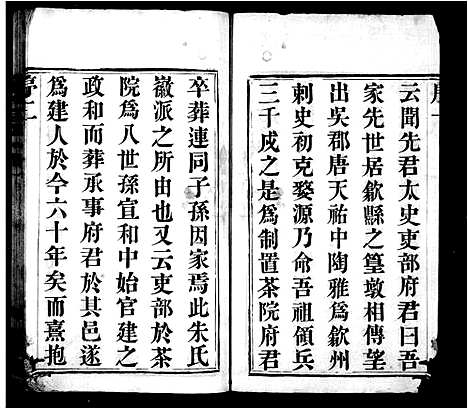 云聞先君太史吏部府君曰吾
家先世居歙縣之篁墩相傳望
出吳郡唐天祐中陶雅為歙州
刺史初克婺源乃命吾祖領兵
三千戍之是為制置茶院府君
卒葬連同子孫因家焉此朱氏
徽派之所由也又云吏部於茶
院為八世孫宣和中始官建之
政和而葬承事府君於其邑遂
為建人於今六十年矣而熹抱